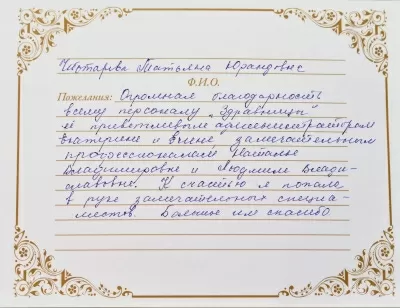 Чистарева Татьяна
Ф.И.О.
Пожелания: Огромная благодарность
всему персоналу „Здравницы"
и приветливым администраторам
Екатерине и замечательным
профессионалам Наталье
Владимировне и Людмиле Влади-
славовне. К счастью я попала
в руки замечательных специа-
листов. Большое им спасибо